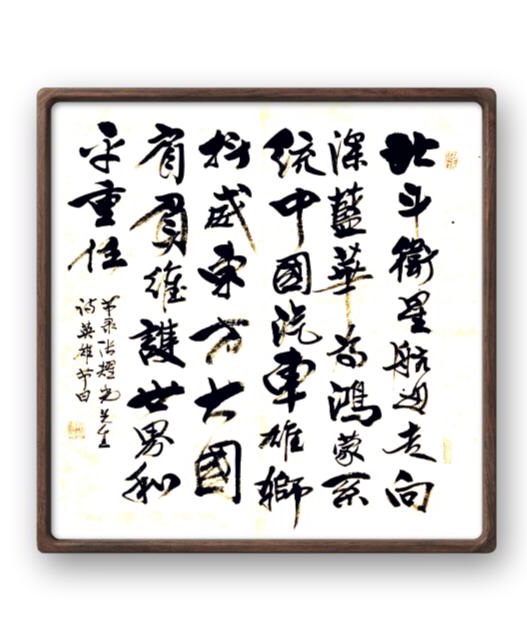 北斗衛星航母走向
深藍華為鴻蒙系
統中國汽車雄獅
抖威東方大國
肩負維護世界和
平重任
节录张耀光先生
诗英雄节日